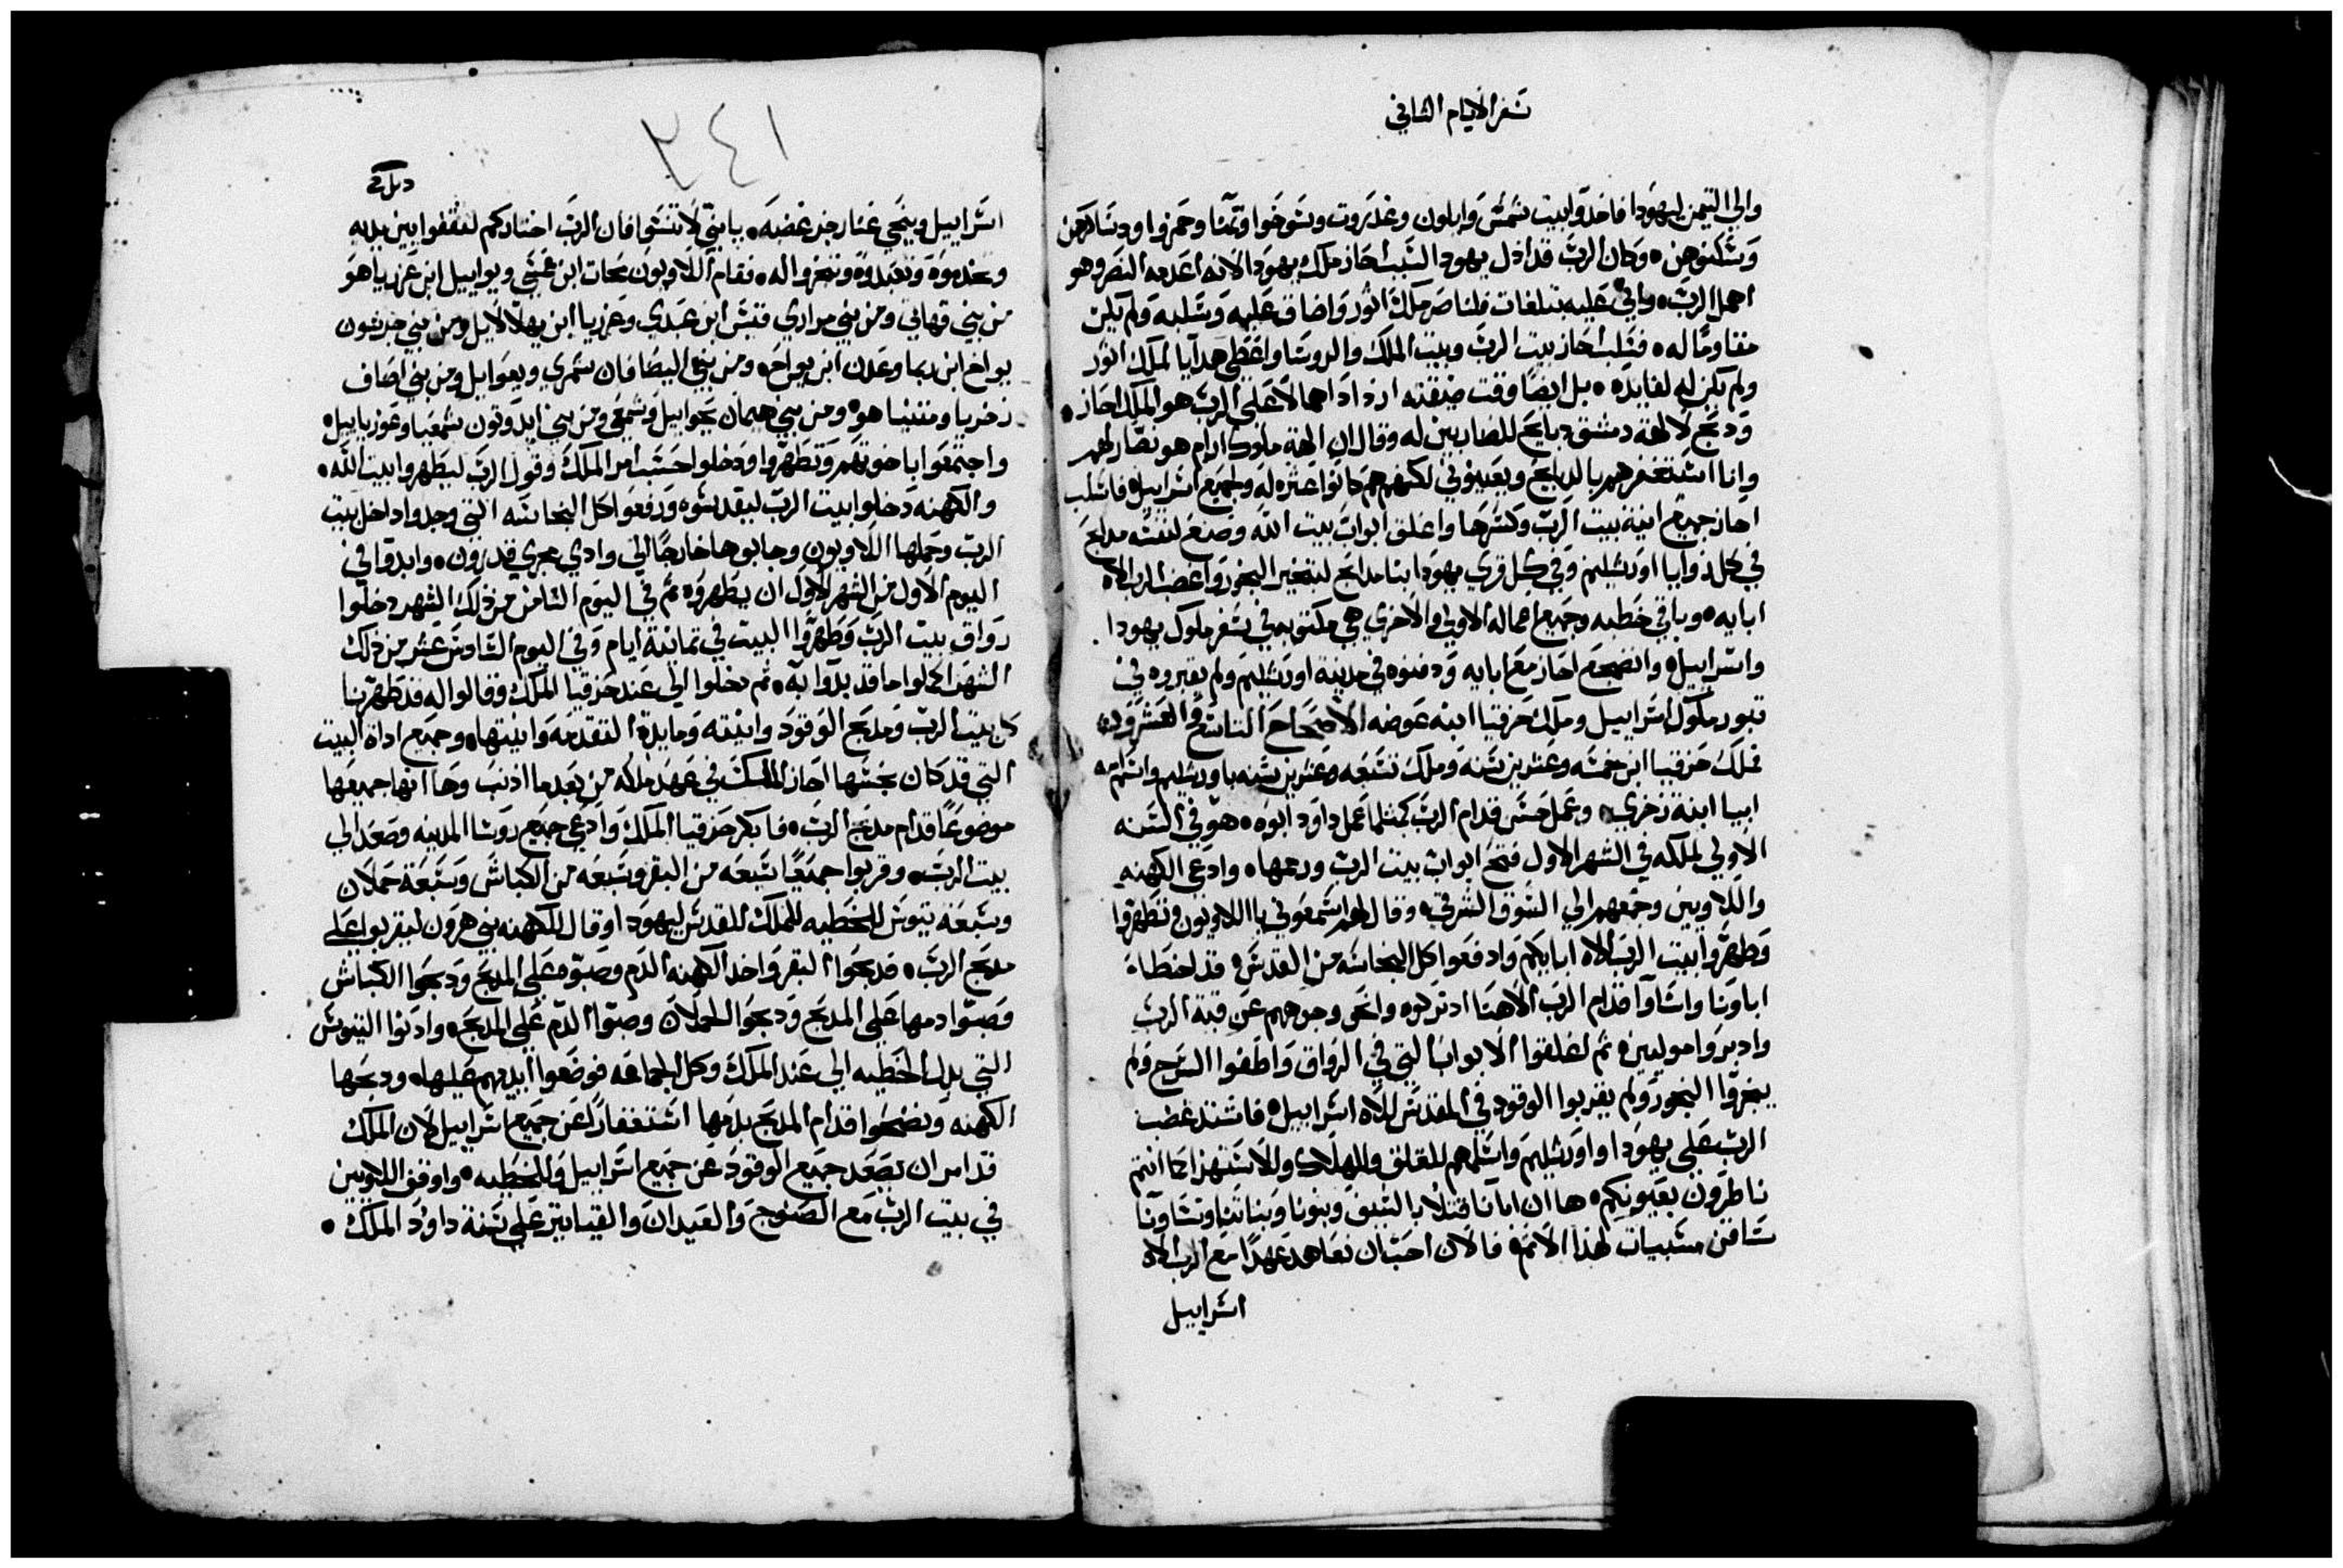 سفر الايام الثاني
والي التيمن ليهودا فاخدوا بيت شمس وايلون وغدروت وسوخوا وتمنا وحمزوا ودساكرهن
وسكنوهن وكان الرب قد اذل يهودا لسبب احاز ملك يهودا لانه اعدمه النصر وهو
اهمل الرب واتي عليه بتلغات فلناصر ملك اثور واضاف عليه وسلبه ولم يكن
مقاوما له فسلب احاز بيت الرب وبيت الملك والروسا واعطي هدايا لملك اثور
ولم يكن له لفايده بل ايضا وقت ضيقته ازداد اهمالا علي الرب هو الملك احاز
ودبح لالهة دمشق دبايح للضاربين له وقال ان الهة ملوك ارام هو نصار لهم
وانا استغفرهم بالدبايح ويعينوني لكنهم هم كانوا عثره له ولجميع اسراييل فاسلب
احاز جميع انية بيت الرب وكسرها واغلق ابواب بيت الله وصنع لنفسه مدابح
في كل زوايا اورشليم وفي كل قري يهودا بنا مدابح لتبخير البخور واغضب الرب الاه
ابايه وباقي خطبه وجميع اعماله الاولي والاخري هي مكتوبه في سفر ملوك يهودا
واسراييل وانضجع احاز مع ابايه ودفنوه في مدينة اورشليم ولم يقبروه في
قبور ملوك اسراييل وملك حزقيا ابنه عوضه الاصحاح التاسع والعشرون
فملك حزقيا ابن خمسه وعشرين سنه وملك تسعه وعشرين سنه باورشليم واسم امه
ابيا ابنة زخري وعمل حسن قدام الرب كمثلما عمل داود ابوه هو في السنه
الاولي لملكه في الشهر الاول فتح ابواب بيت الرب ورمها وادعي الكهنه
واللاويين وجمعهم الي السوق الشرقي وقال لهم اسمعوني يا اللاويون وتطهروا
وطهروا بيت الرب الاه ابايكم وادفعوا كل النجاسه من القدس قد اخطاة
اباونا واساوا قدام الرب الاهنا اد تركوه وانحي وجوههم عن قبة الرب
وادبروا موليين ثم اغلقوا الابواب التي في الرواق واطفوا السرج ولم
يبخروا البخور ولم يقربوا الوقود في المقدس لالاه اسراييل فاشتد غضب
الرب علي يهودا واورشليم واسلمهم للقلق والهلاك والاستهزا كما انتم
ناظرون بعيونكم ها ان ابانا قتلا بالسيف وبنونا وبناتنا ونساونا
ساقن مسبيات لهذا الاثم فالان احب ان نعاهد عهدا مع الرب الاه
اسراييل
٢٤١
اسراييل وينحي عنا رجز غضبه يا بني لا تنسوا فان الرب اختاركم لتقفوا بين يديه
وتخدموه وتعبدوه وتبخروا له فقام اللاويون محات ابن عمسي ويواييل ابن عزرياهو
من بني قهاتي ومن بني مراري قيس ابن عبدي وعزريا ابن يهلالاييل ومن بني جدشون
يواخ ابن ريما وعدن ابن يواخ ومن بني اليصافان شمري ويعواييل ومن بني اصاف
زخريا ومتنياهو ومن بني هيمان يحواييل وشمعي ومن بني ايدوتون شمعيا وعوزياييل
واجتمعوا باخوتهم وتطهروا ودخلوا حسب امر الملك وقول الرب ليطهروا بيت الله
والكهنه دخلوا بيت الرب ليقدسوه ودفعوا كل النجاسه التي وجدوا داخل بيت
الرب وحملها اللاويون وجابوها خارجا الي وادي مجري قدرون وابدوا في
اليوم الاول من الشهر الاول ان يطهروه ثم في اليوم الثامن من ذلك الشهر دخلوا
رواق بيت الرب وطهروا البيت في تمانية ايام وفي اليوم السادس عشر من ذلك
الشهر اكملوا ما قد بدوا به ثم دخلوا الي عند حزقيا الملك وقالوا له قد طهرنا
كل بيت الرب ومدبح الوقود وانيته ومايدة التقدمه وانيتها وجميع اداة البيت
التي قد كان نجسها احاز الملك في عهد ملكه من بعد ما اذنب وها انها جميعها
موضوعا قدام مدبح الرب فابكر حزقيا الملك وادعي جميع روسا المدينه وصعد الي
بيت الرب وقربوا جميعا سبعه من البقر وسبعه من الكباش وسبعة حملان
وسبعه تيوس للخطيه للملك للقدس ليهودا وقال للكهنه بني هرون ليقربوا علي
مدبح الرب فدبحوا البقر واخد الكهنه الدم وصبوه علي المدبح ودبحوا الكباش
وصبوا دمها علي المدبح ودبحوا الحملان وصبوا الدم علي المدبح وادنوا التيوس
التي بدل الخطيه الي عند الملك وكل الجماعه فوضعوا ايديهم عليها ودبحها
الكهنه ونضحوا قدام المدبح بدمها استغفارا عن جميع اسراييل لان الملك
قد امر ان يصعد جميع الوقود عن جميع اسراييل وللخطيه واوقف اللاويين
في بيت الرب مع الصنوج والعيدان والقياتير علي سنة داود الملك